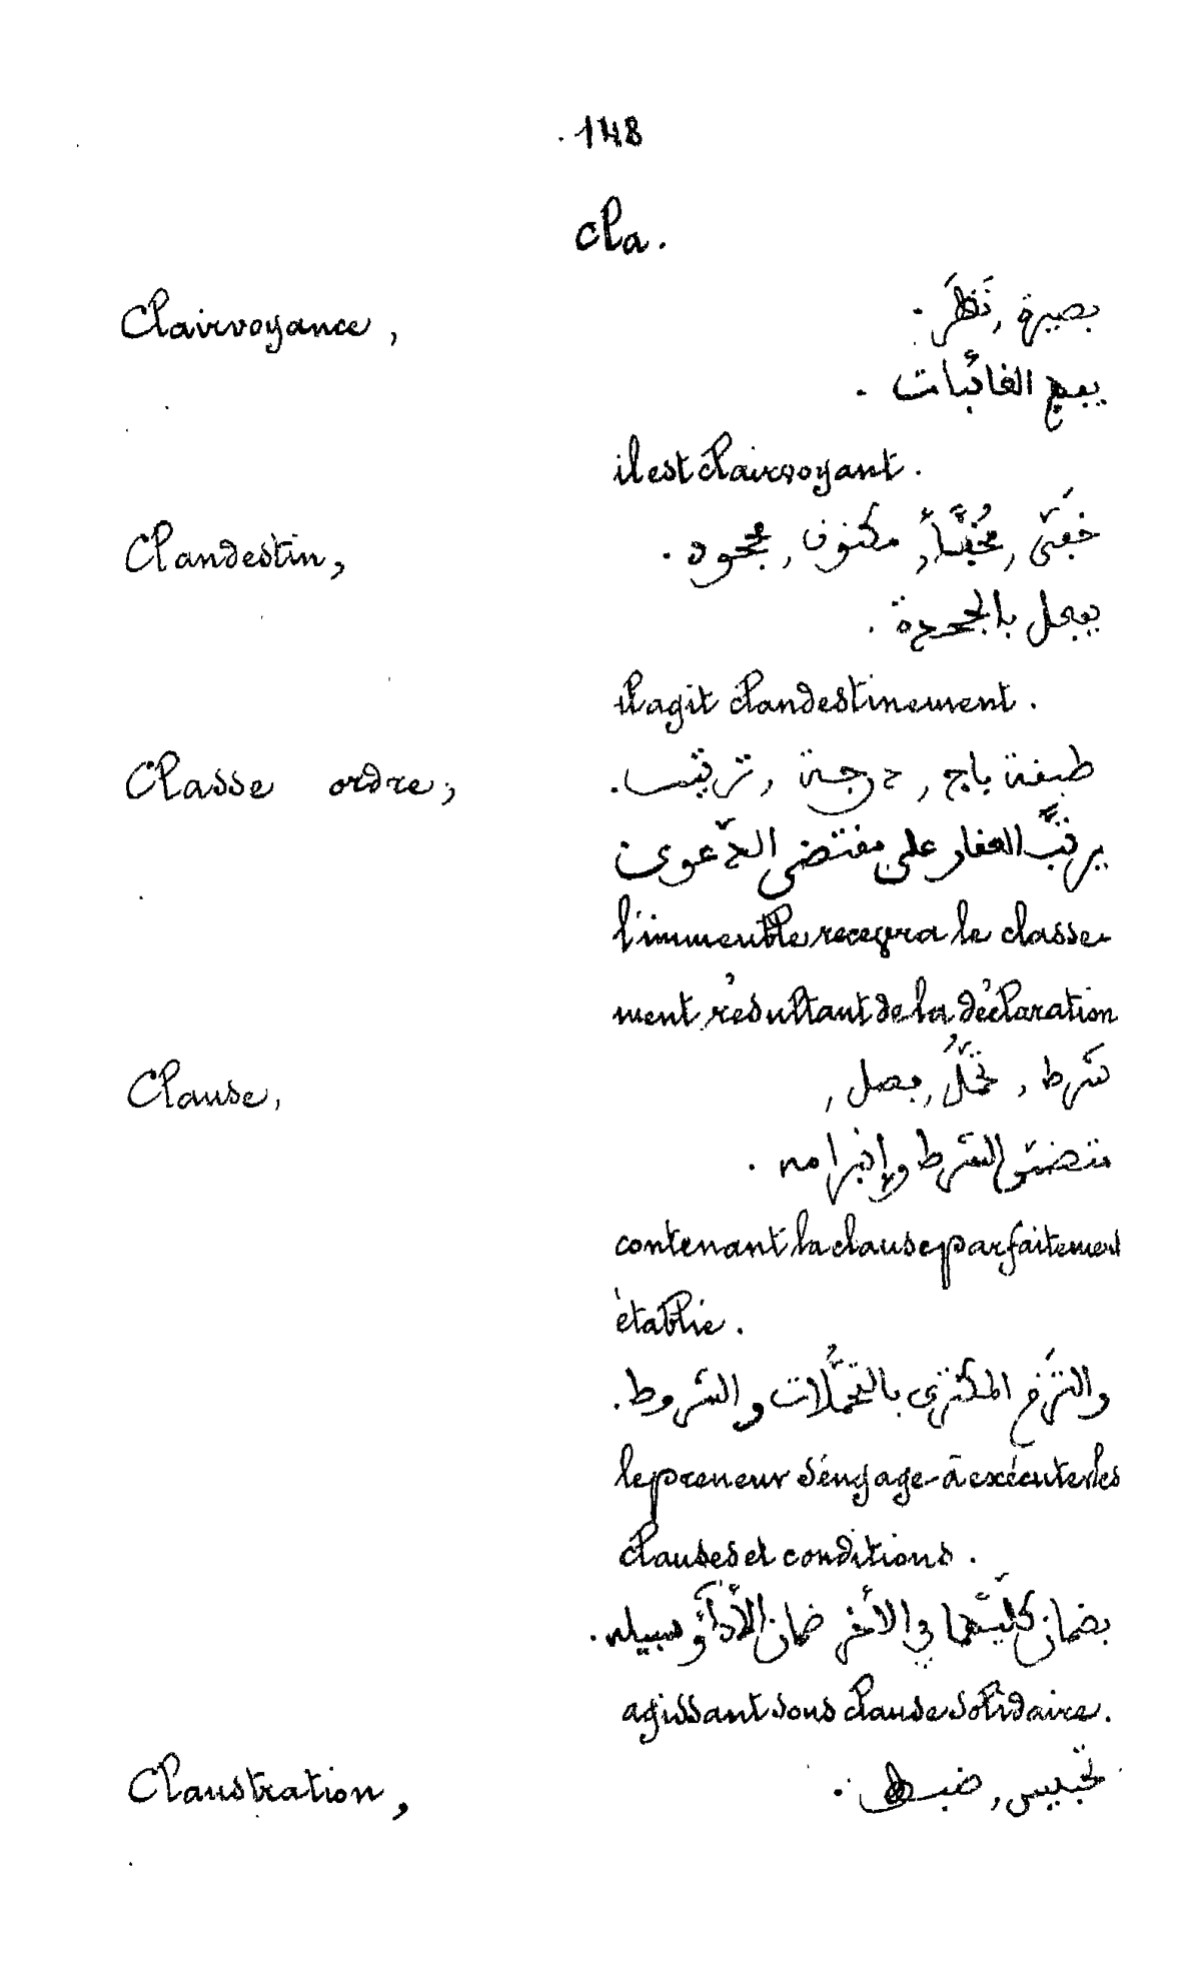 148
cla.
Clairvoyance, بصيرة, نَظَر.
يبهم الغائبات.
il est clairvoyant.
Clandestin, مُخَبَّأ, مكنون, مجحود.
يعمل بالجحدة.
il agit clandestinement.
Classe ordre, طبقة باج, درجة, ترتيب.
يرتَّب العقار على مقتضى الدّعوى
l'immeuble recevra le classe-
ment résultant de la déclaration
Clause, شرط, تحمُّل, فصل,
متضمّن الشرط وإبرامه.
contenant la clause parfaitement
établie.
والتزَم المكترى بالتحمُّلات والشروط.
le preneur s'engage à exécuter les
clauses et conditions.
بضمان كليهما في الأخر ضمان الأداء وسبيله.
agissant sous clause solidaire.
Claustration, تحبيس, ضبط.